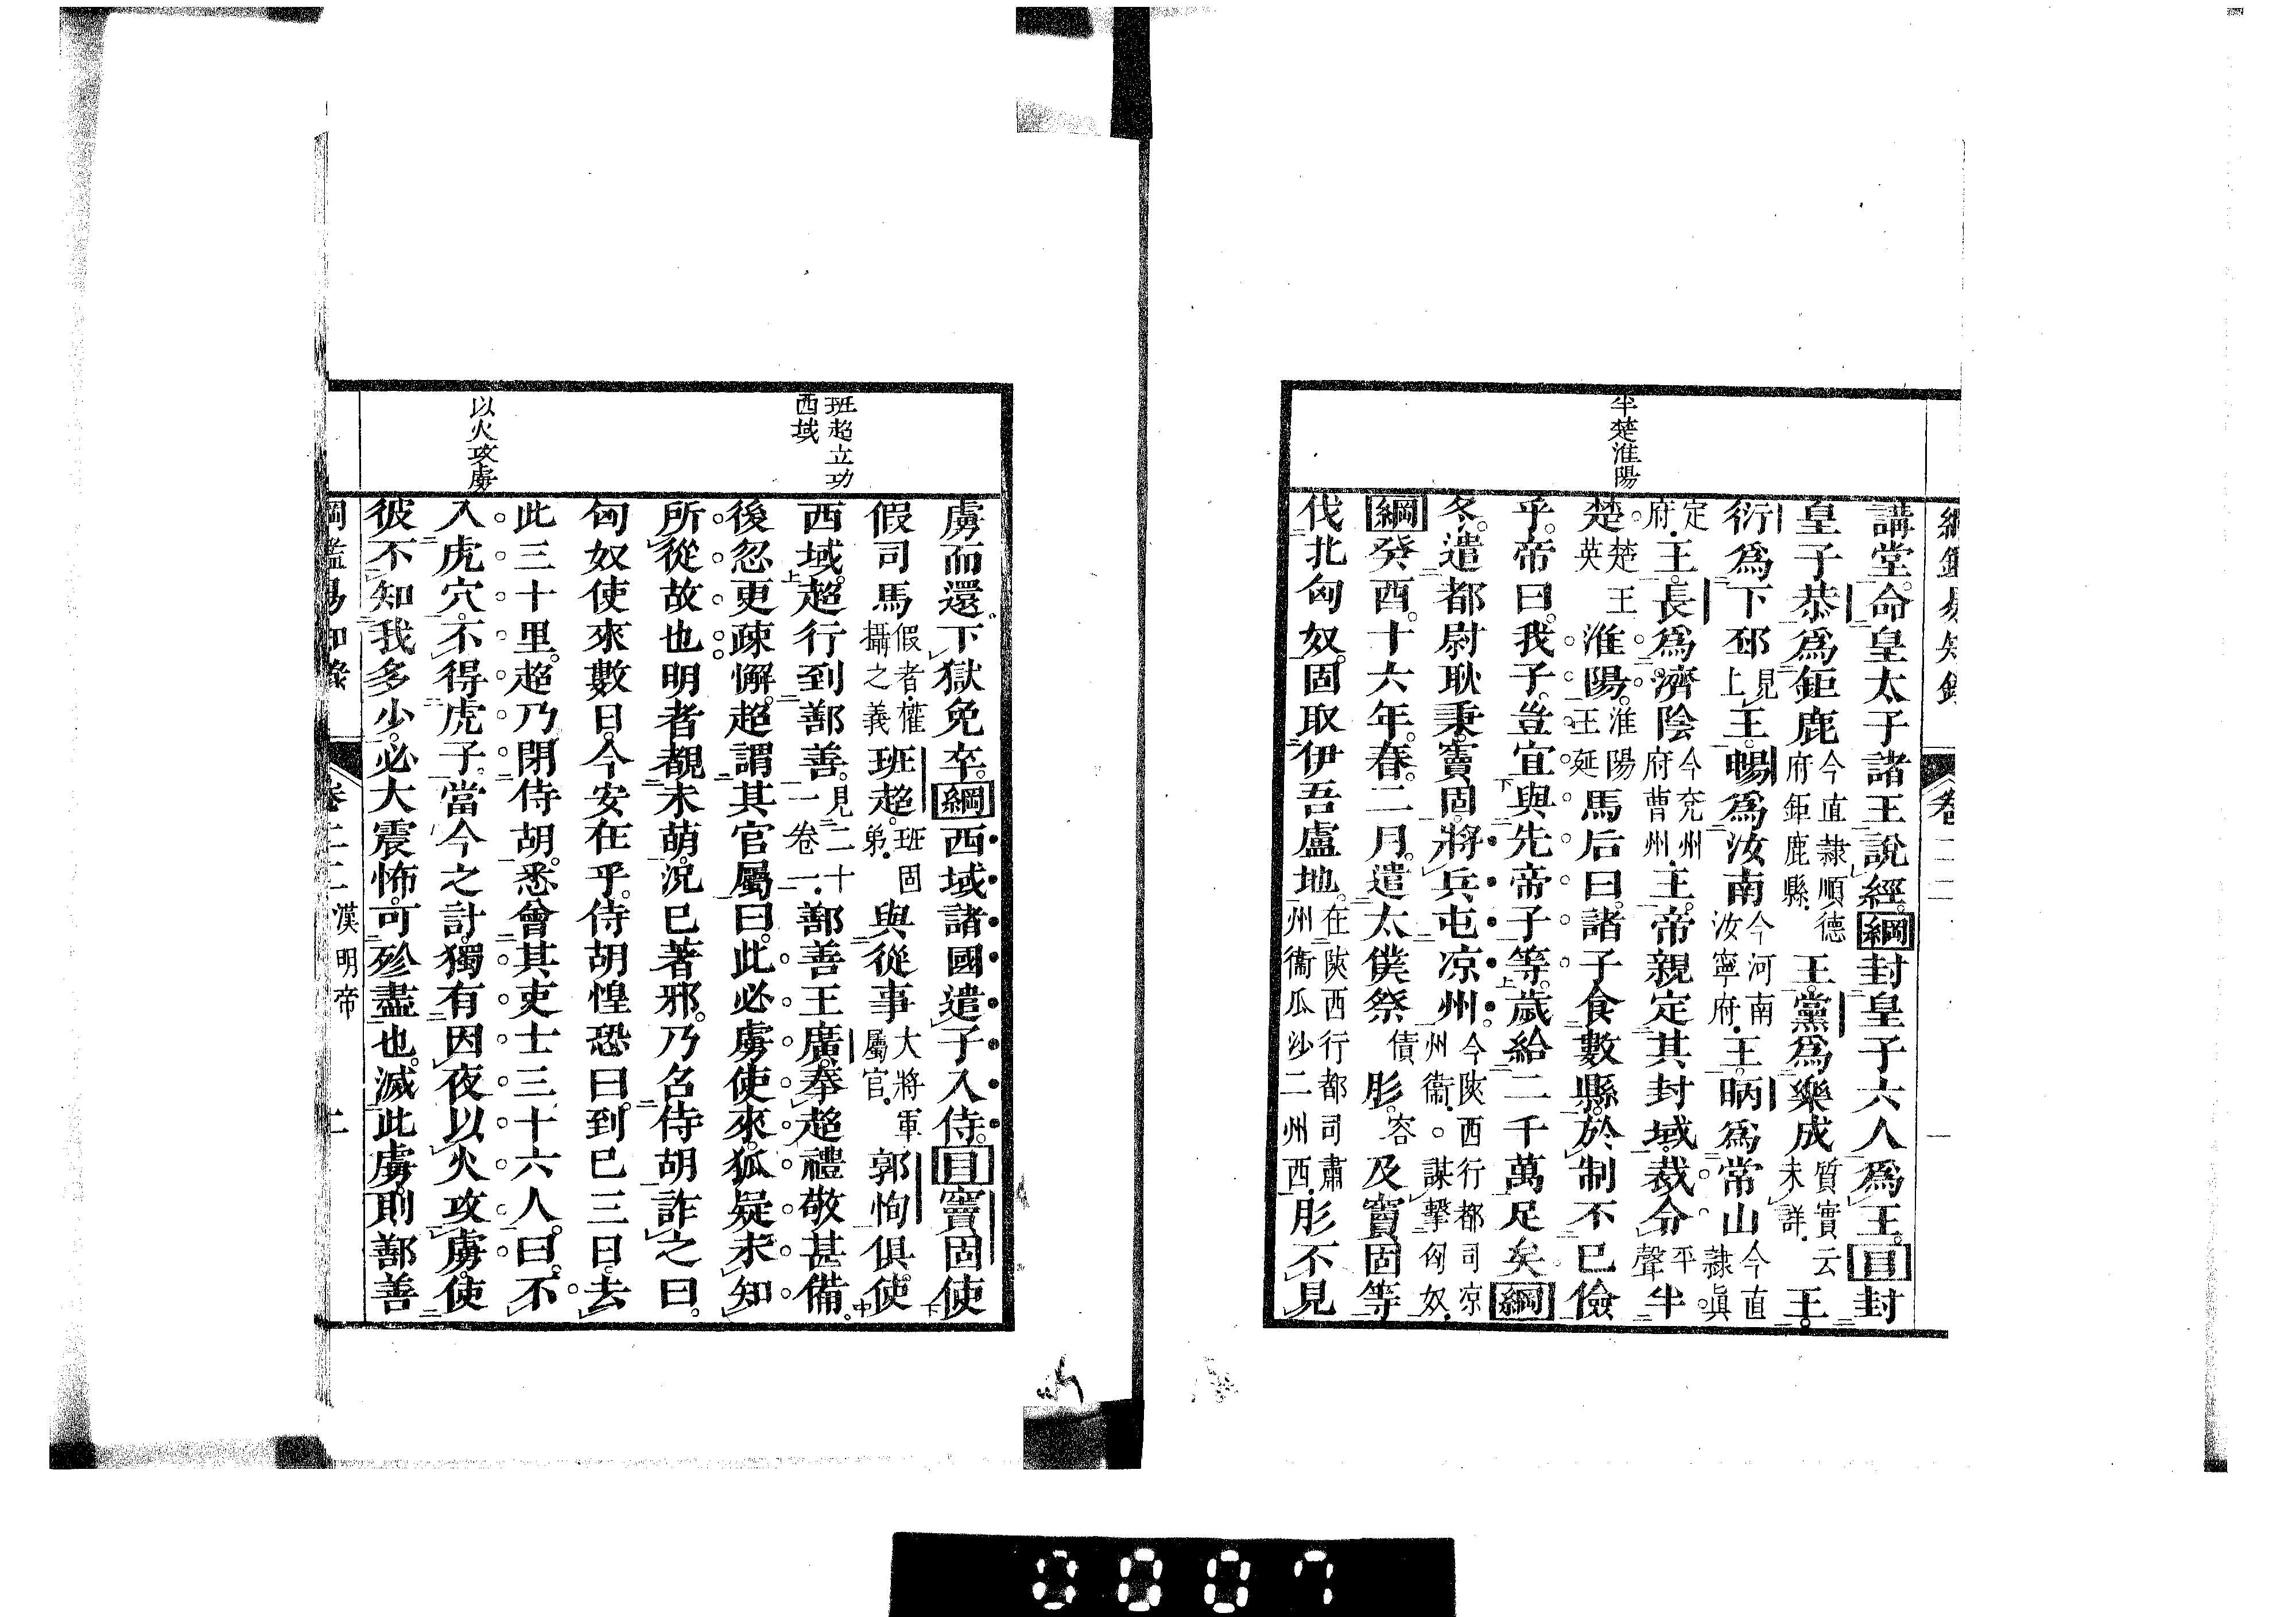 綱鑑易知錄 卷二二 一
半楚淮陽
講堂。命皇太子諸王說經。綱封皇子六人爲王。目封
皇子恭爲鉅鹿今直隷順德府鉅鹿縣．王。黨爲樂成質實云未詳．王。
衍爲下邳見上王。暢爲汝南今河南汝寧府．王。昞爲常山今直隷眞
定府．王。長爲濟陰今兗州府曹州．王。帝親定其封域。裁分平聲半
楚。楚王英淮陽。淮陽王延馬后曰。諸子食數縣。於制不已儉
乎。帝曰。我子。豈宜與先帝子等。歲給二千萬足矣綱
冬。遣都尉耿秉。竇固。將兵屯凉州。今陜西行都司凉州衞．○謀擊匈奴．
綱癸酉。十六年。春。二月。遣太僕祭債肜。容及竇固等
伐北匈奴。固取伊吾盧地。在陜西行都司肅州衞瓜沙二州西．肜不見
班超立功西域
以火攻虜
虜而還。下獄免卒。綱西域諸國遣子入侍。目竇固使
假司馬假者．權攝之義班超。班固弟．與從事大將軍屬官．郭恂俱。使
西域。超行到鄯善。見二十一卷一．鄯善王廣。奉超禮敬甚備。
後忽更疎懈。超謂其官屬曰。此必虜使來。狐疑未知
所從故也明者覩未萌。況已著邪。乃名侍胡詐之曰。
匈奴使來數日。今安在乎。侍胡惶恐曰。到已三日。去
此三十里。超乃閉侍胡。悉會其吏士三十六人。曰。不
入虎穴。不得虎子。當今之計。獨有因夜以火攻虜。使
彼不知我多少。必大震怖。可殄盡也。滅此虜。則鄯善
綱鑑易知錄 卷二二 漢明帝 二
0007